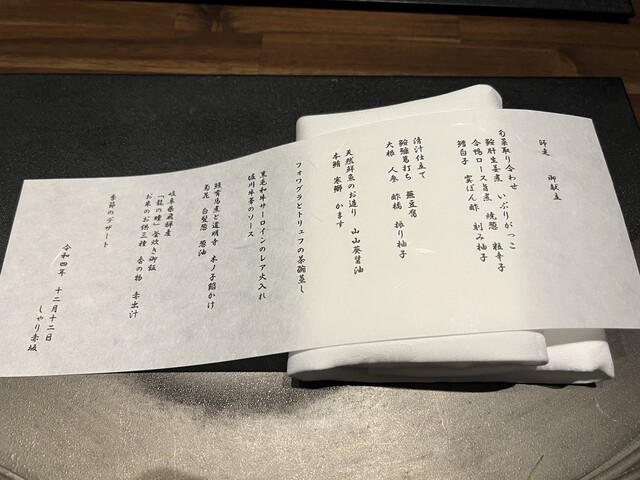 師走　御献立
旬菜取り合わせ
鮟肝生姜煮　いぶりがっこ
合鴨ロース旨煮　焼葱　粒辛子
鱈白子　雲ぽん酢　刻み柚子
清汁仕立て
鮟鱇葛打ち　蕪豆腐
大根　人参　酢橘　振り柚子
天然鮮魚のお造り　山山葵醤油
本鮪　寒鰤　かます
フォワグラとトリュフの茶碗蒸し
黒毛和牛サーロインのレア火入れ
堀川牛蒡のソース
鰻有馬煮と道明寺　木ノ子餡かけ
菊花　白髪葱　葱油
岐阜県飛騨産
「龍の瞳」釜炊き御飯
お米のお供三種　香の物　赤出汁
季節のデザート
令和四年　十二月十二日
しゃり赤坂